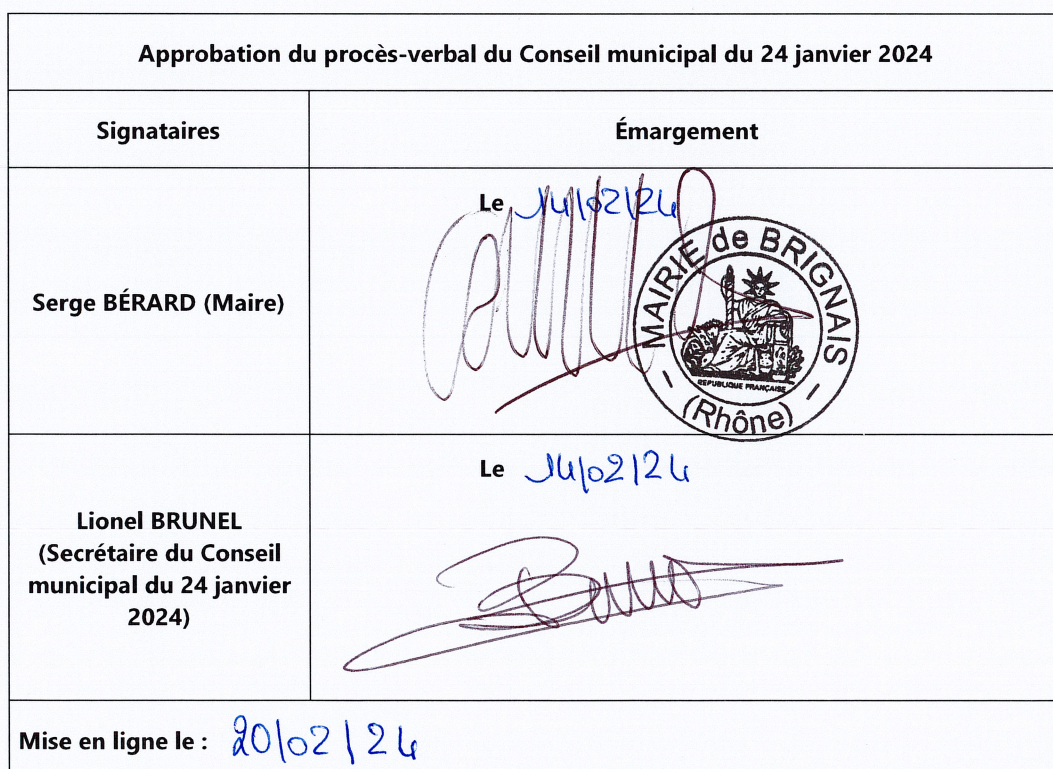 Approbation du procès-verbal du Conseil municipal du 24 janvier 2024
Signataires
Émargement
Serge BÉRARD (Maire)
Le 14/02/24
MAIRIE de BRIGNAIS
REPUBLIQUE FRANÇAISE
- (Rhône) -
Lionel BRUNEL
(Secrétaire du Conseil
municipal du 24 janvier
2024)
Le 14/02/24
Mise en ligne le : 20/02/24